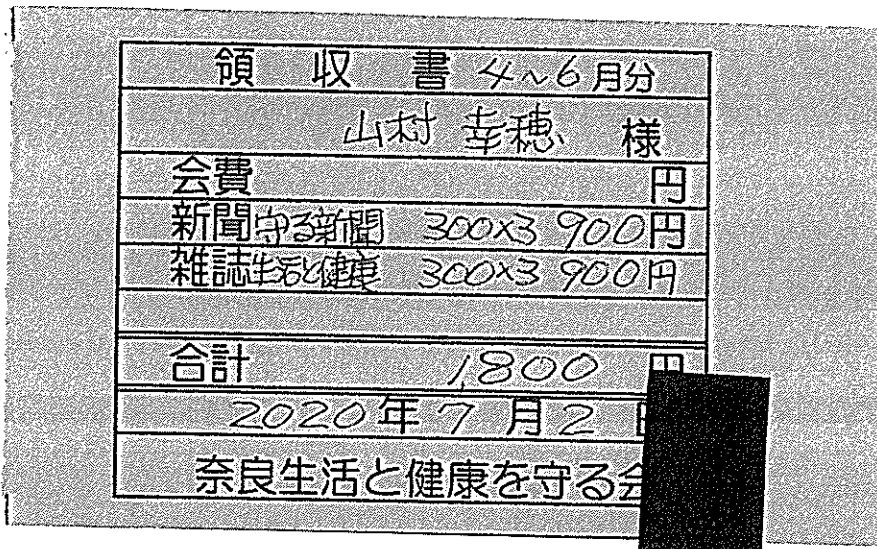 領収書 4~6月分
山村 幸穂 様
会費 円
新聞 守る新聞 300×3 900円
雑誌 生活と健康 300×3 900円
合計 1,800 円
2020年7月2日
奈良生活と健康を守る会